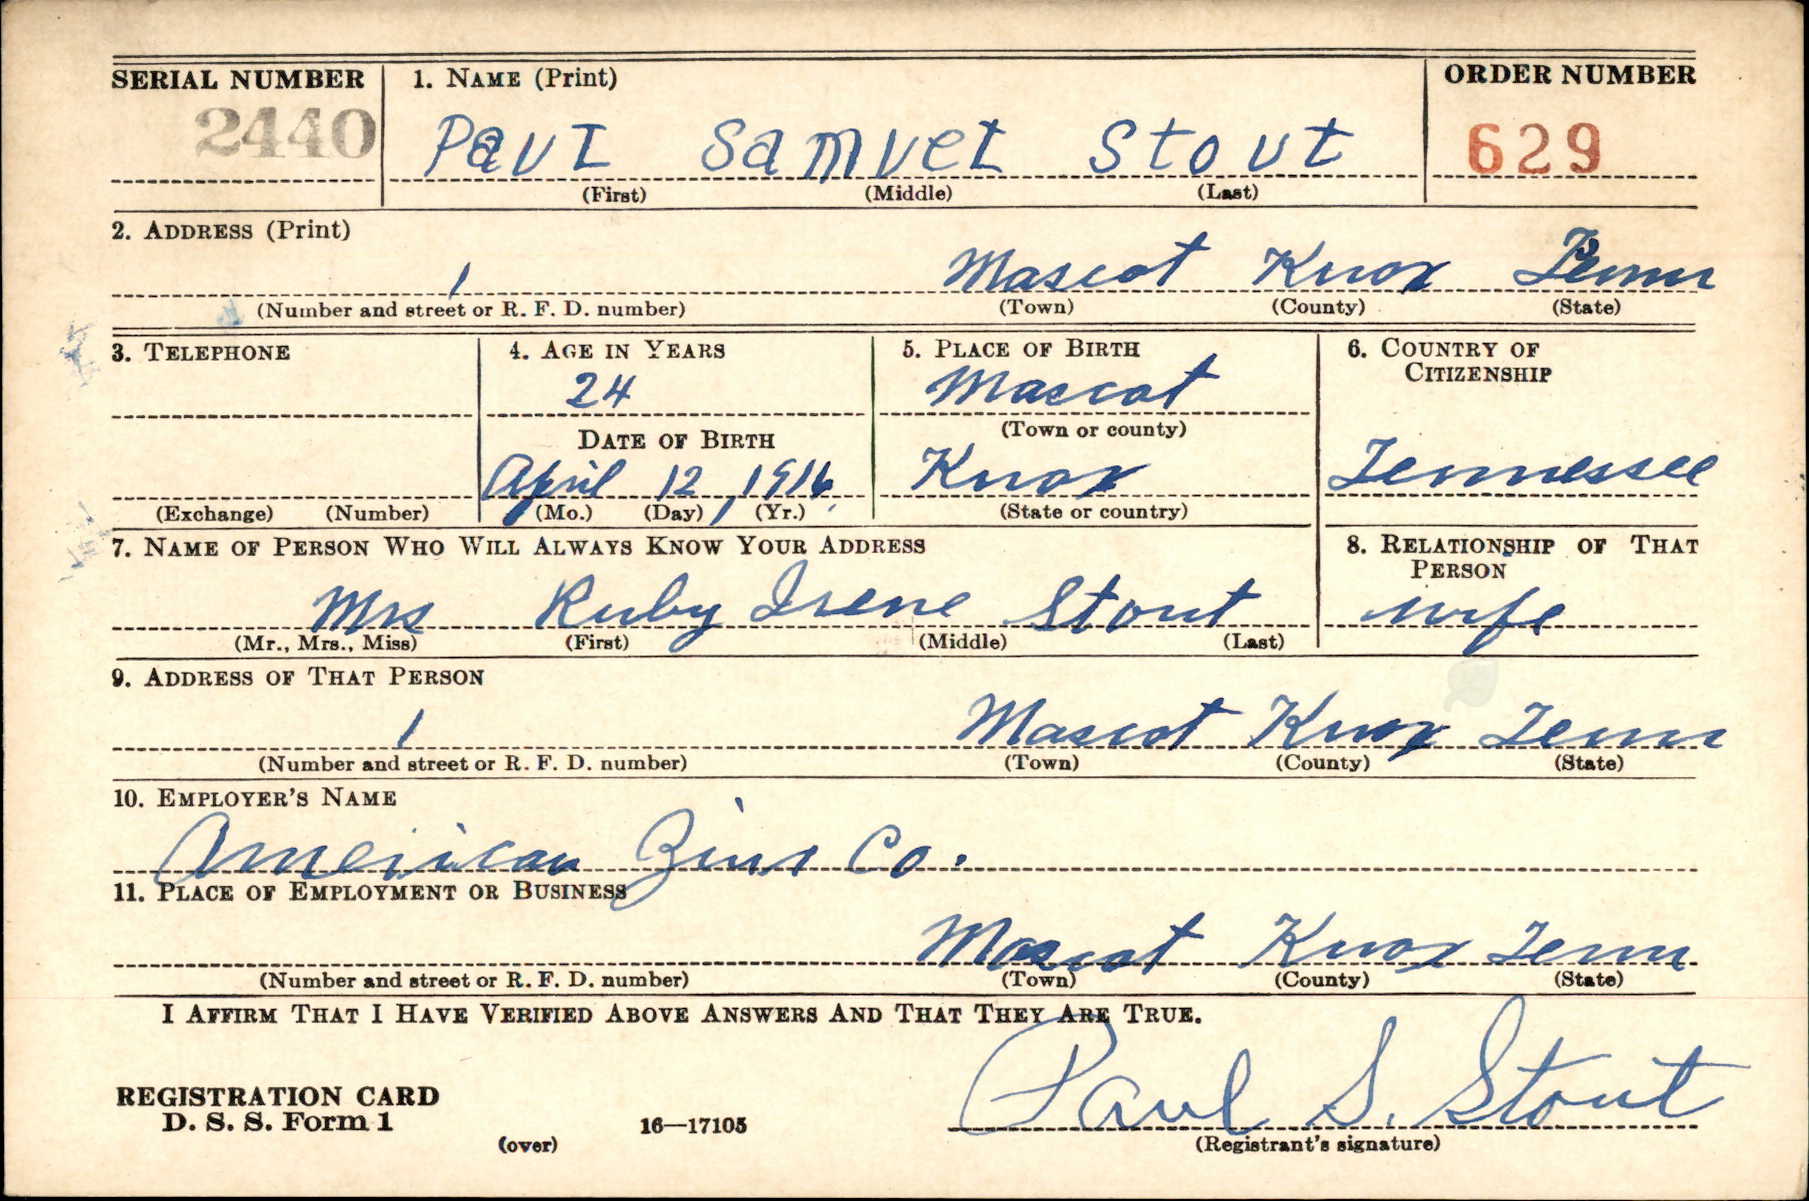 SERIAL NUMBER 1. NAME (Print) ORDER NUMBER
2440 Paul Samuel Stout 629
(First) (Middle) (Last)
2. ADDRESS (Print)
1 Mascot Knox Tenn
(Number and street or R. F. D. number) (Town) (County) (State)
3. TELEPHONE 4. AGE IN YEARS 5. PLACE OF BIRTH 6. COUNTRY OF
CITIZENSHIP
24 Mascot
(Town or county)
DATE OF BIRTH
April 12, 1916 Knox Tennessee
(Exchange) (Number) (Mo.) (Day) (Yr.) (State or country)
7. NAME OF PERSON WHO WILL ALWAYS KNOW YOUR ADDRESS 8. RELATIONSHIP OF THAT
PERSON
Mrs Ruby Irene Stout wife
(Mr., Mrs., Miss) (First) (Middle) (Last)
9. ADDRESS OF THAT PERSON
1 Mascot Knox Tenn
(Number and street or R. F. D. number) (Town) (County) (State)
10. EMPLOYER'S NAME
American Zinc Co.
11. PLACE OF EMPLOYMENT OR BUSINESS
Mascot Knox Tenn
(Number and street or R. F. D. number) (Town) (County) (State)
I AFFIRM THAT I HAVE VERIFIED ABOVE ANSWERS AND THAT THEY ARE TRUE.
REGISTRATION CARD
D. S. S. Form 1 16—17105 Paul S. Stout
(over) (Registrant's signature)